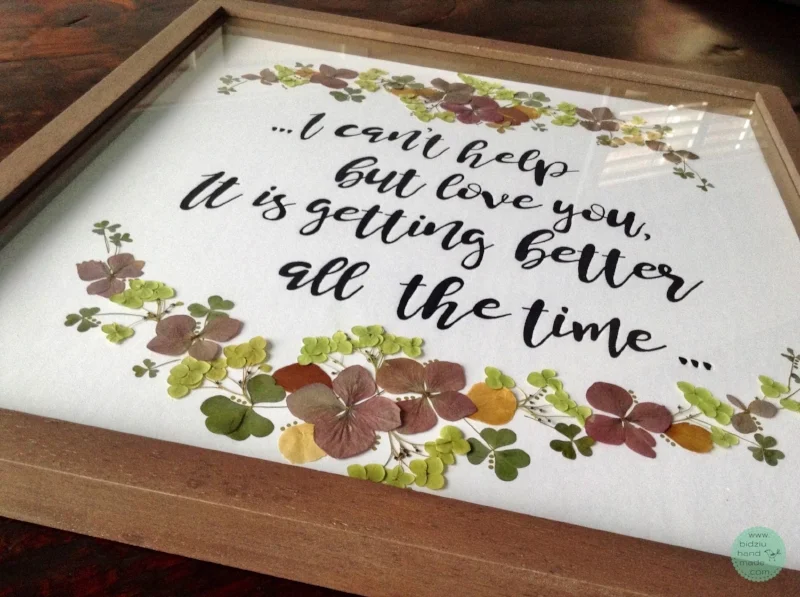 ...I can't help
but love you,
It is getting better
all the time...
www.
bidziu
hand
made
.com